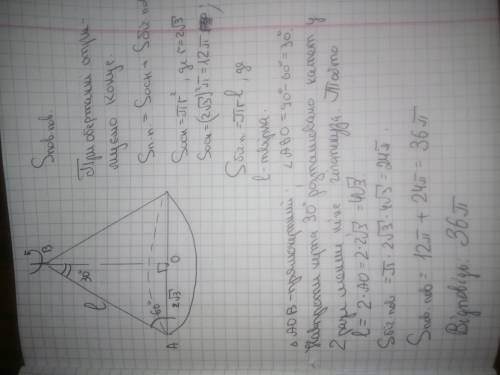 Sпов.пов.
При обертанні отри-
муємо конус.
Sп.п. = Sосн + Sбіч.пов
Sосн = πr², де r = 2√3
Sосн = (2√3)²π = 12π
Sбіч.п. = πrl, де
l - твірна.
B
30°
l
60°
2√3
A
O
△AOB - прямокутний. ∠ABO = 90° - 60° = 30°.
Навпроти кута 30° розташовано катет у
2 рази менший ніж гіпотенуза. Тобто
l = 2·AO = 2·2√3 = 4√3
Sбіч пов = π·2√3·4√3 = 24π.
Sпов пов = 12π + 24π = 36π
Відповідь: 36π